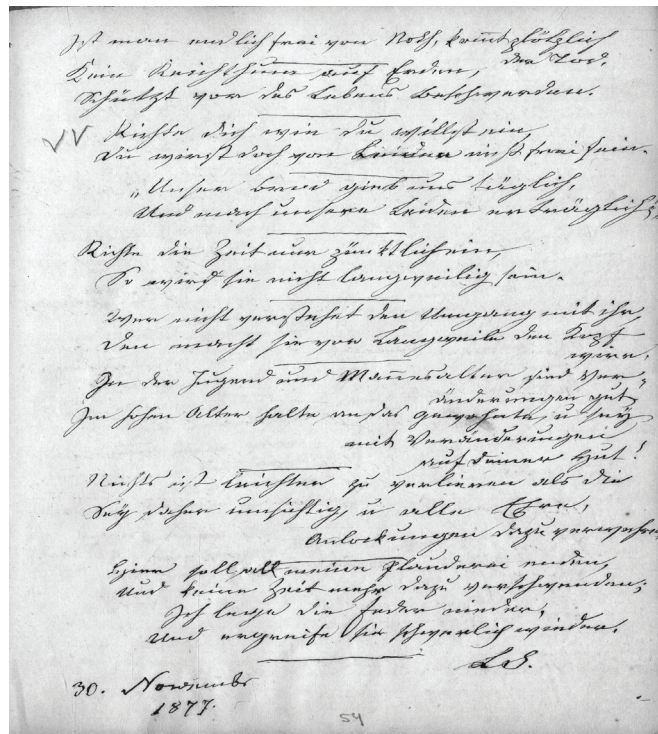 Ist man endlich frei von Noth, kommt plötzlich
der Tod.
Kein Reichthum auf Erden,
Schützt vor des Lebens Beschwerden.
Richte dich wie du willst ein,
Du wirst doch von Leiden nicht frei sein.
„Unser Brod gieb uns täglich,
Und mach unsere Leiden erträglich
Richte die Zeit nur pünktlich ein,
So wird sie nicht langweilig sein.
Wer nicht verstehet den Umgang mit ihr,
Den macht sie vor Langweile den Kopf
wirr.
In der Jugend und Mannesalter sind Ver-
änderungen gut
Im hohen Alter halte an das gewohnte, u sey
mit Veränderungen
auf deiner Hut!
Nichts ist leichter zu verlieren als die
Ehre,
Sey daher umsichtig, u alle
Anlockungen dazu verwehre
Hier soll all meine Plauderei enden,
Und keine Zeit mehr dazu verschwenden;
Ich lege die Feder nieder,
Und ergreife sie schwerlich wieder.
L. S.
30. Novembr
1877.
54